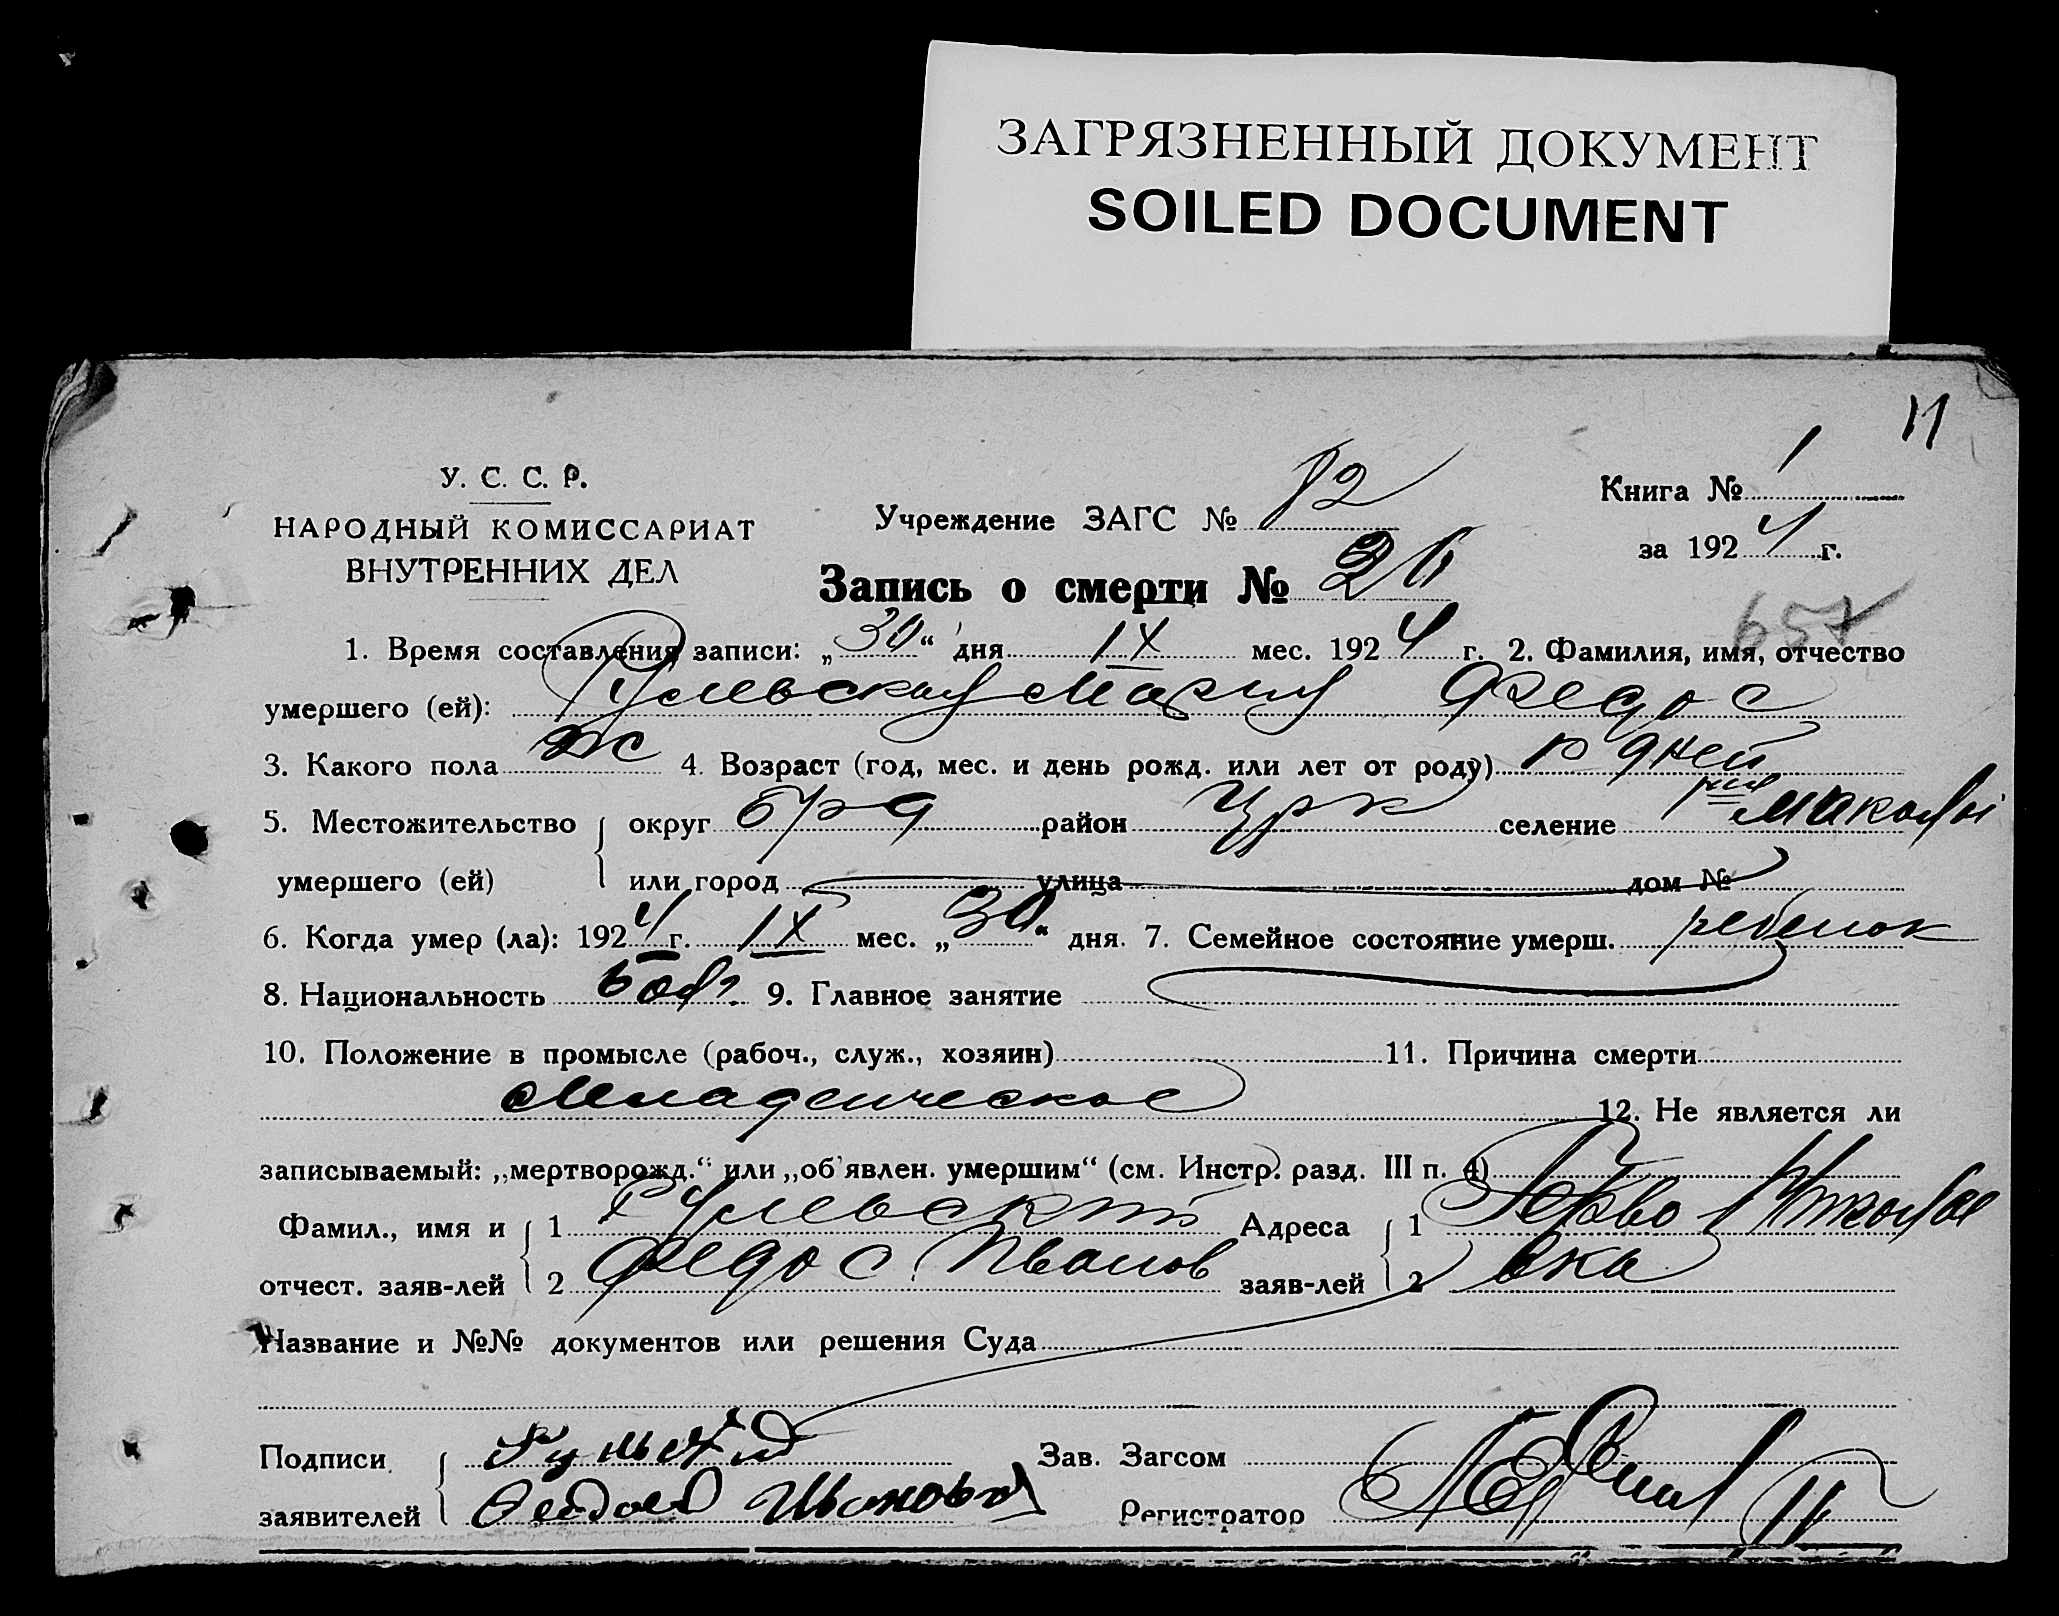 ЗАГРЯЗНЕННЫЙ ДОКУМЕНТ
SOILED DOCUMENT
11
У. С. С. Р.
НАРОДНЫЙ КОМИССАРИАТ
ВНУТРЕННИХ ДЕЛ
Учреждение ЗАГС № 82
Книга № 1
за 1924 г.
Запись о смерти № 26
657
1. Время составления записи: „30“ дня IX мес. 1924 г. 2. Фамилия, имя, отчество
умершего (ей): Гулевская Мария Федос
3. Какого пола ж 4. Возраст (год, мес. и день рожд. или лет от роду) дней
5. Местожительство округ район Црк селение
умершего (ей) или город улица дом №
6. Когда умер (ла): 1924 г. IX мес. „30“ дня. 7. Семейное состояние умерш. ребенок
8. Национальность болг. 9. Главное занятие
10. Положение в промысле (рабоч., служ., хозяин) 11. Причина смерти
Младенческое
12. Не является ли
записываемый: „мертворожд.“ или „об'явлен. умершим“ (см. Инстр. разд. III п. 4)
Фамил., имя и 1 Гулевский Адреса 1 Перво Николае
отчест. заяв-лей 2 Федос Иванов заяв-лей 2 вка
Название и №№ документов или решения Суда
Подписи Зав. Загсом
заявителей Феодосий Иванов Регистратор